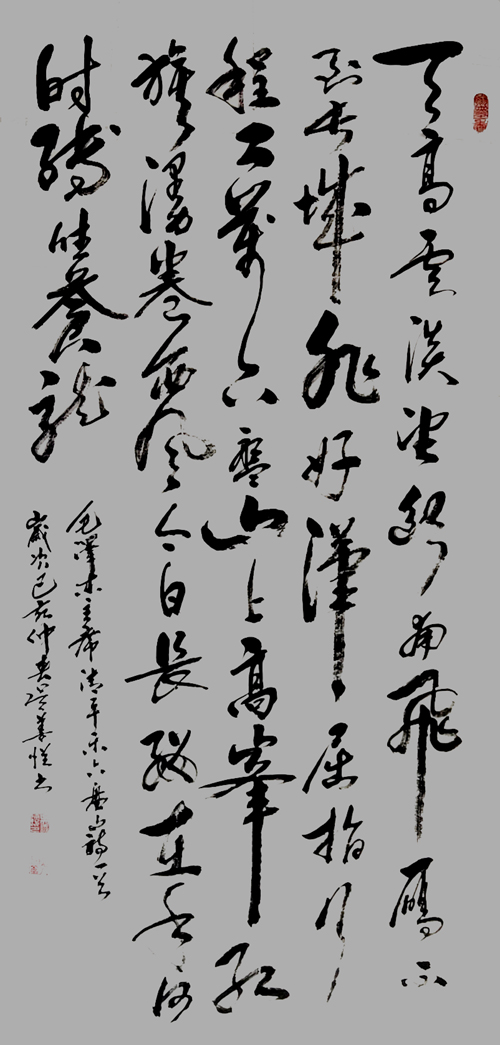 天高雲淡望斷南飛雁不
到长城非好漢屈指行
程二萬六盤山上高峯紅
旗漫卷西風今日長纓在手何
时縛住蒼龍
毛澤东主席清平乐六盘山詩一首
歲次己亥仲春